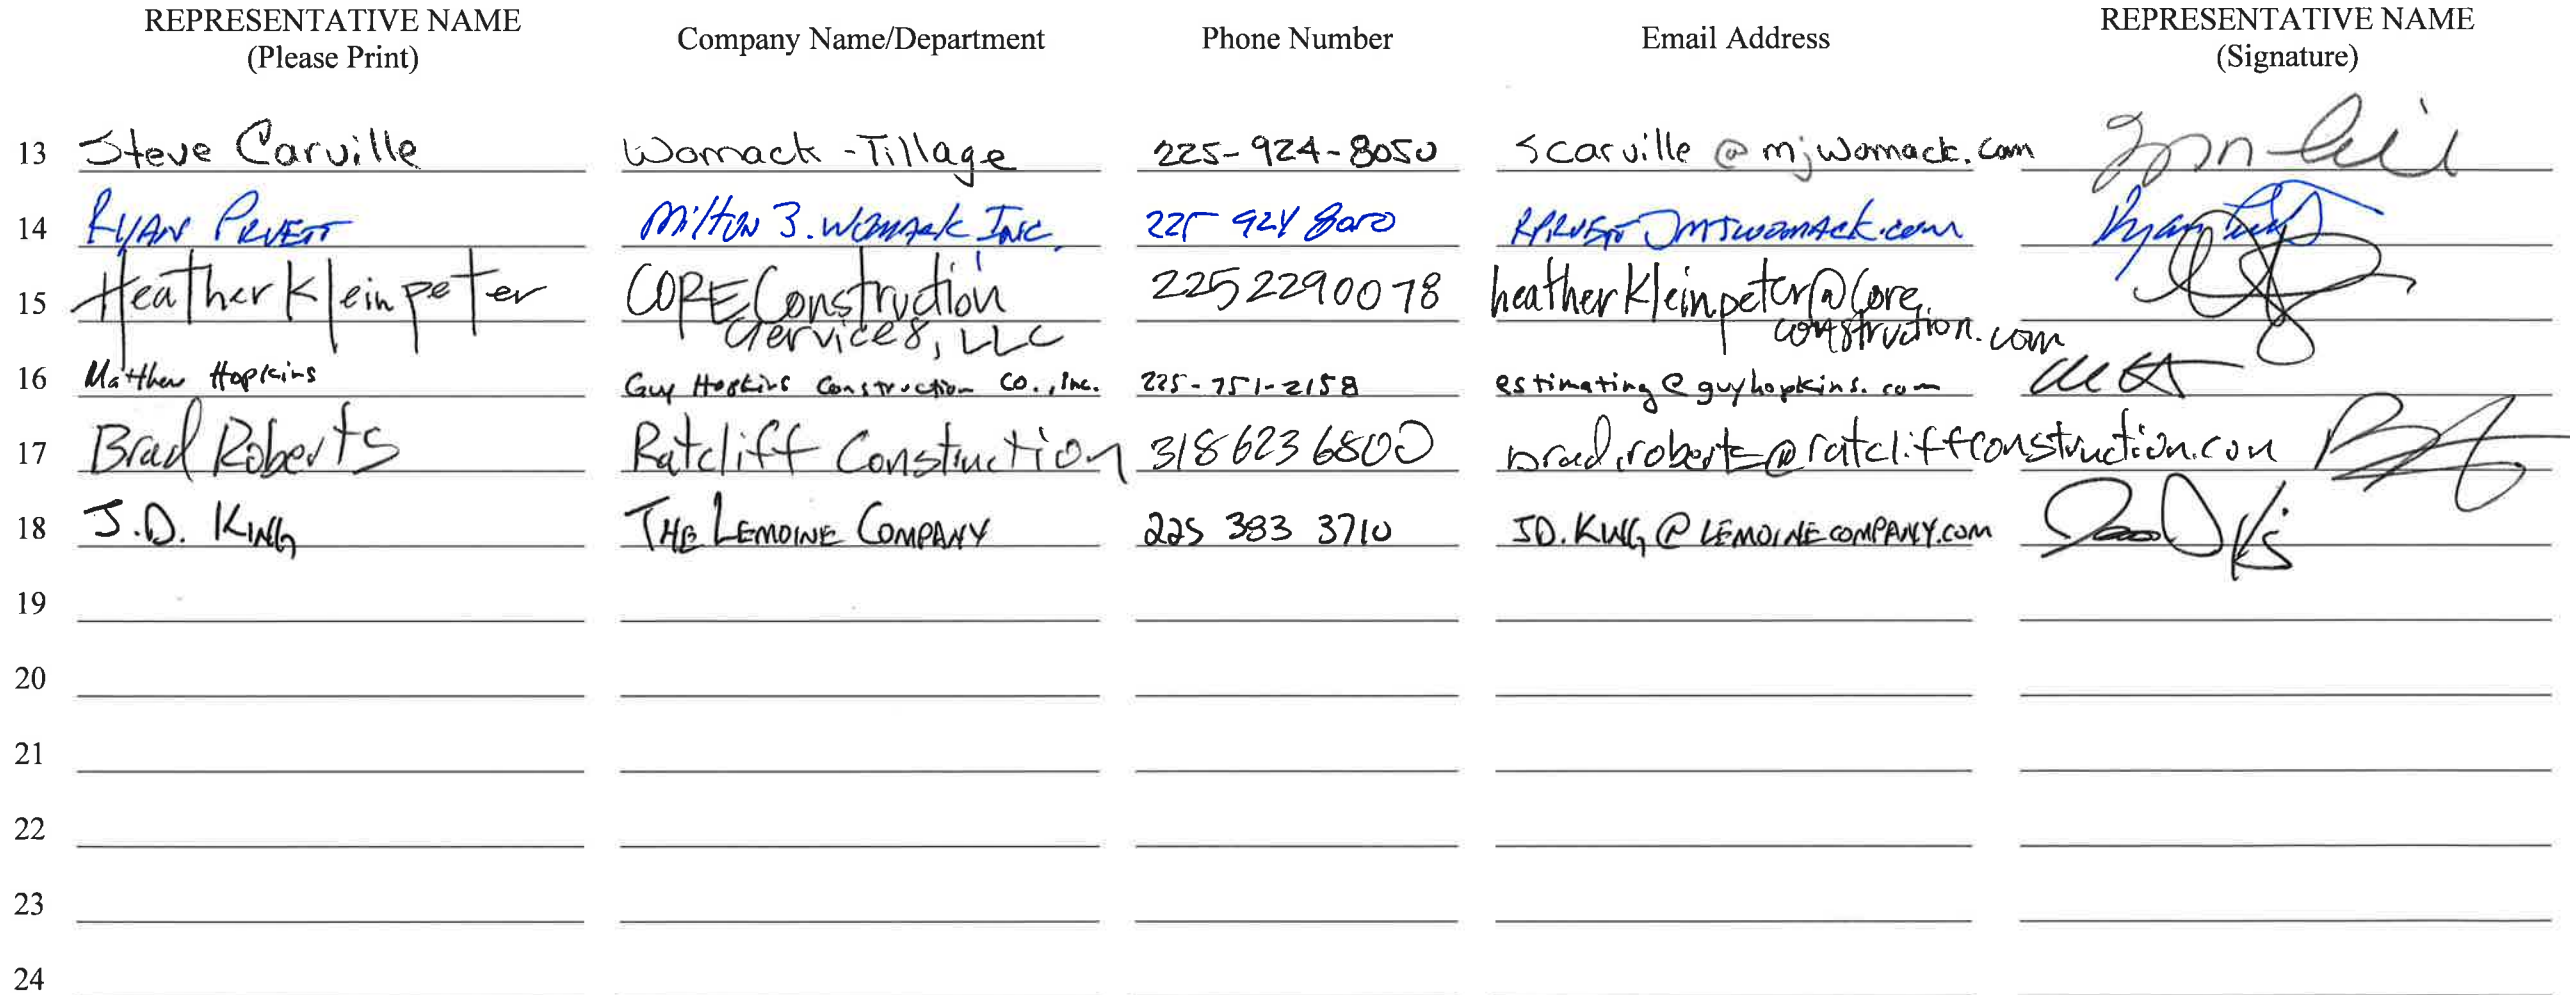 REPRESENTATIVE NAME (Please Print) Company Name/Department Phone Number Email Address REPRESENTATIVE NAME (Signature)
13 Steve Carville Womack-Tillage 225-924-8050 scarville@mjwomack.com
14 RYAN PRUETT Milton J. Womack Inc. 225 924 8050 MJWOMACK.com Ryan
15 Heather Kleinpeter CORE Construction Services, LLC 2252290078 heatherkleinpeter@coreconstruction.com
16 Matthew Hopkins Guy Hopkins Construction Co., Inc. 225-751-2158 estimating@guyhopkins.com
17 Brad Roberts Ratcliff Construction 318 623 6800 brad.roberts@ratcliffconstruction.com
18 J.D. KING THE LEMOINE COMPANY 225 383 3710 JD.KING@LEMOINECOMPANY.COM
19
20
21
22
23
24